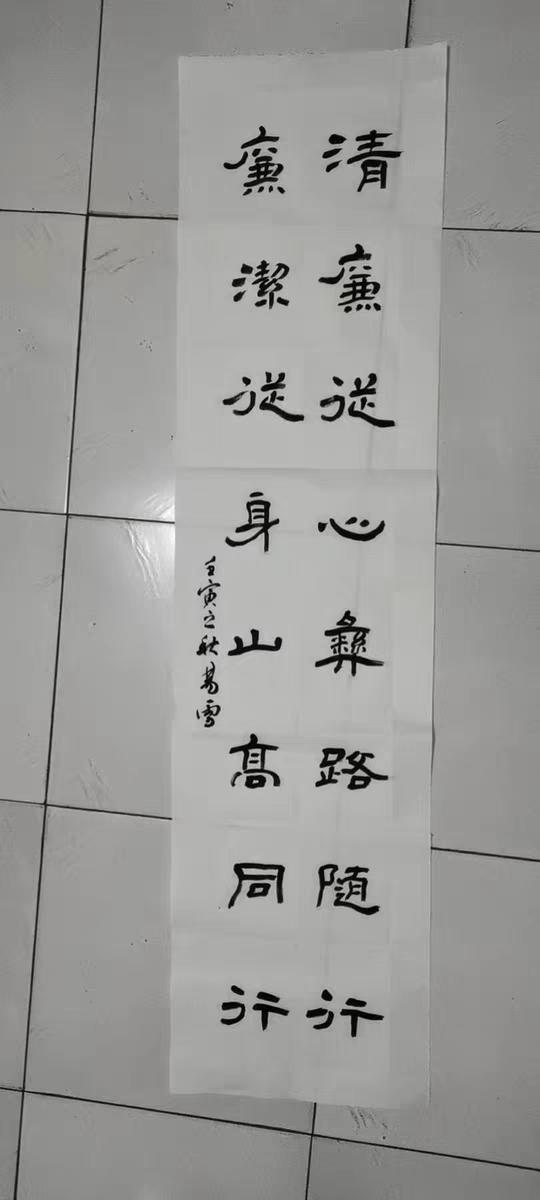 清廉從心彝路隨行
廉潔從身山高同行
壬寅之秋